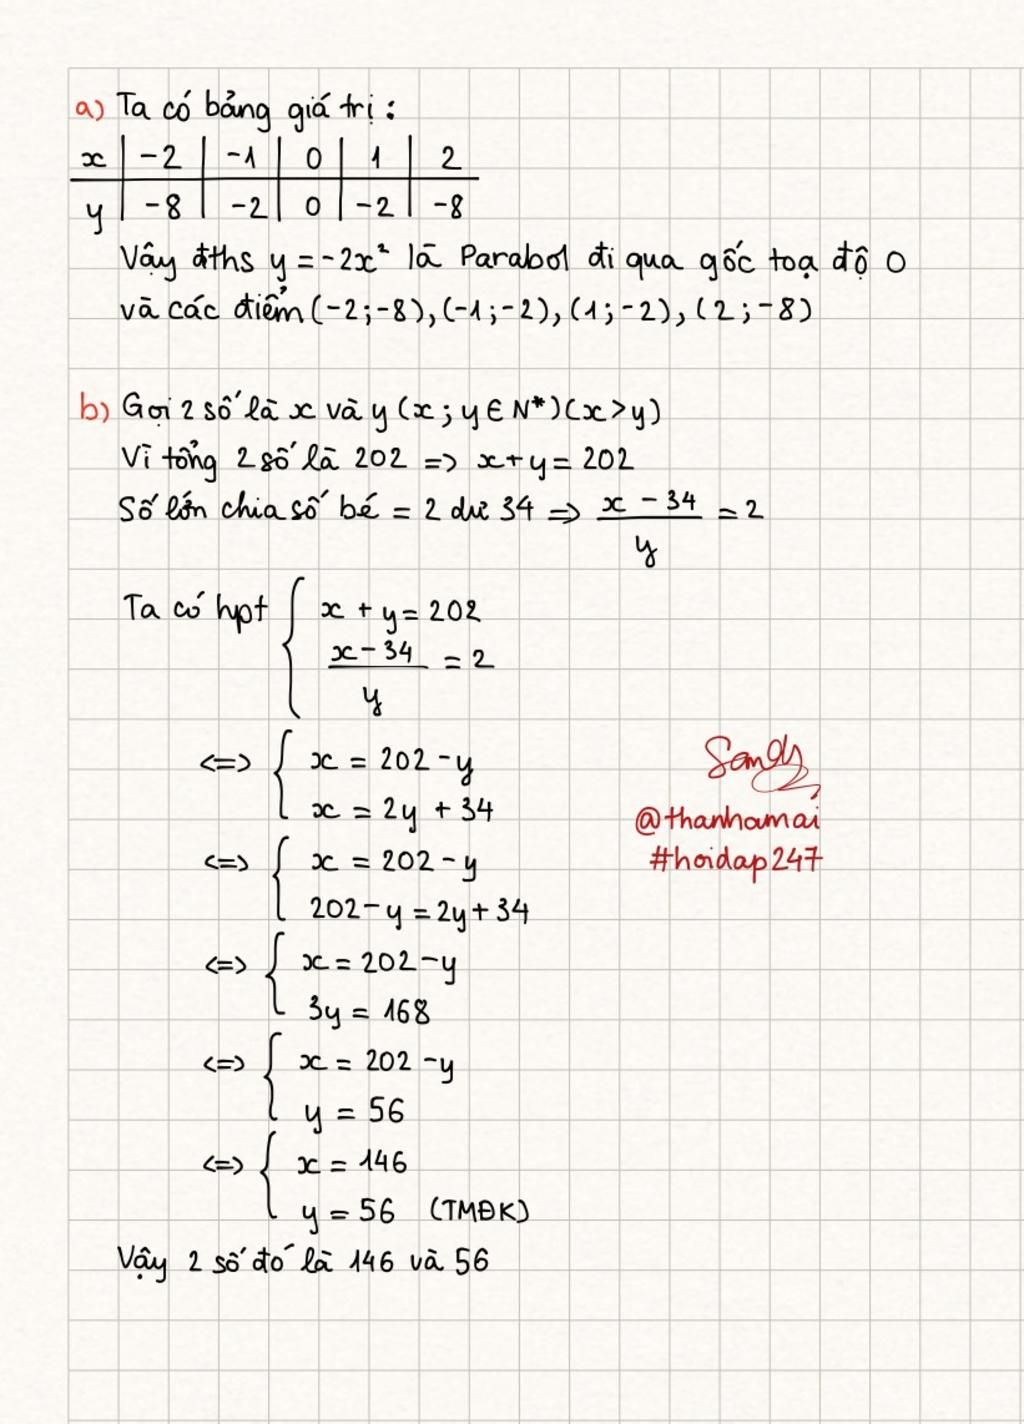 a) Ta có bảng giá trị:
x | -2 | -1 | 0 | 1 | 2
y | -8 | -2 | 0 | -2 | -8
Vậy đths y = -2x² là Parabol đi qua gốc toạ độ O
và các điểm (-2;-8), (-1;-2), (1;-2), (2;-8)
b) Gọi 2 số là x và y (x; y ∈ N*) (x > y)
Vì tổng 2 số là 202 => x + y = 202
Số lớn chia số bé = 2 dư 34 => (x - 34)/y = 2
Ta có hpt { x + y = 202
(x - 34)/y = 2
<=> { x = 202 - y
x = 2y + 34
<=> { x = 202 - y
202 - y = 2y + 34
<=> { x = 202 - y
3y = 168
<=> { x = 202 - y
y = 56
<=> { x = 146
y = 56 (TMĐK)
Vậy 2 số đó là 146 và 56
Sandy
@thanhamai
#hoidap247